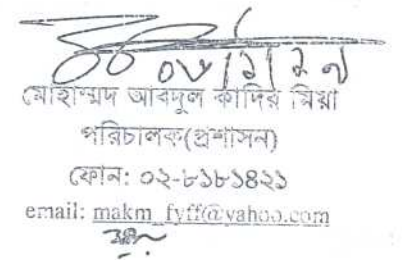 মোহাম্মদ আবদুল কাদির মিয়া
পরিচালক(প্রশাসন)
ফোন: ০২-৮১৮১৪২১
email: makm_fyff@yahoo.com